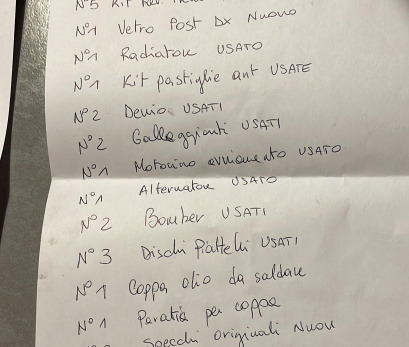 N°5 Kit
N°1 Vetro Post Dx Nuovo
N°1 Radiatore USATO
N°1 Kit pastiglie ant USATE
N°2 Devio USATI
N°2 Galleggianti USATI
N°1 Motorino avviamento USATO
N°1 Alternatore USATO
N°2 Bomber USATI
N°3 Dischi Piattelli USATI
N°1 Coppa olio da saldare
N°1 Paratia per coppa
Specchi originali Nuovi